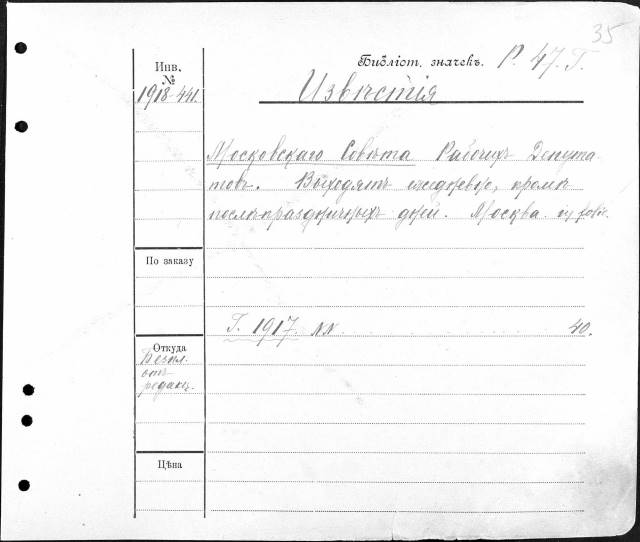 35
Библіот. значекъ. Р. 47. Г.
Инв.
№
1918-441.
Извѣстія
Московскаго Совѣта Рабочихъ Депута-
товъ. Выходятъ ежедневно, кромѣ
послѣпраздничныхъ дней. Москва. in folio.
По заказу
Г. 1917. NN. 40.
Откуда
Безпл.
отъ
редакц.
Цѣна